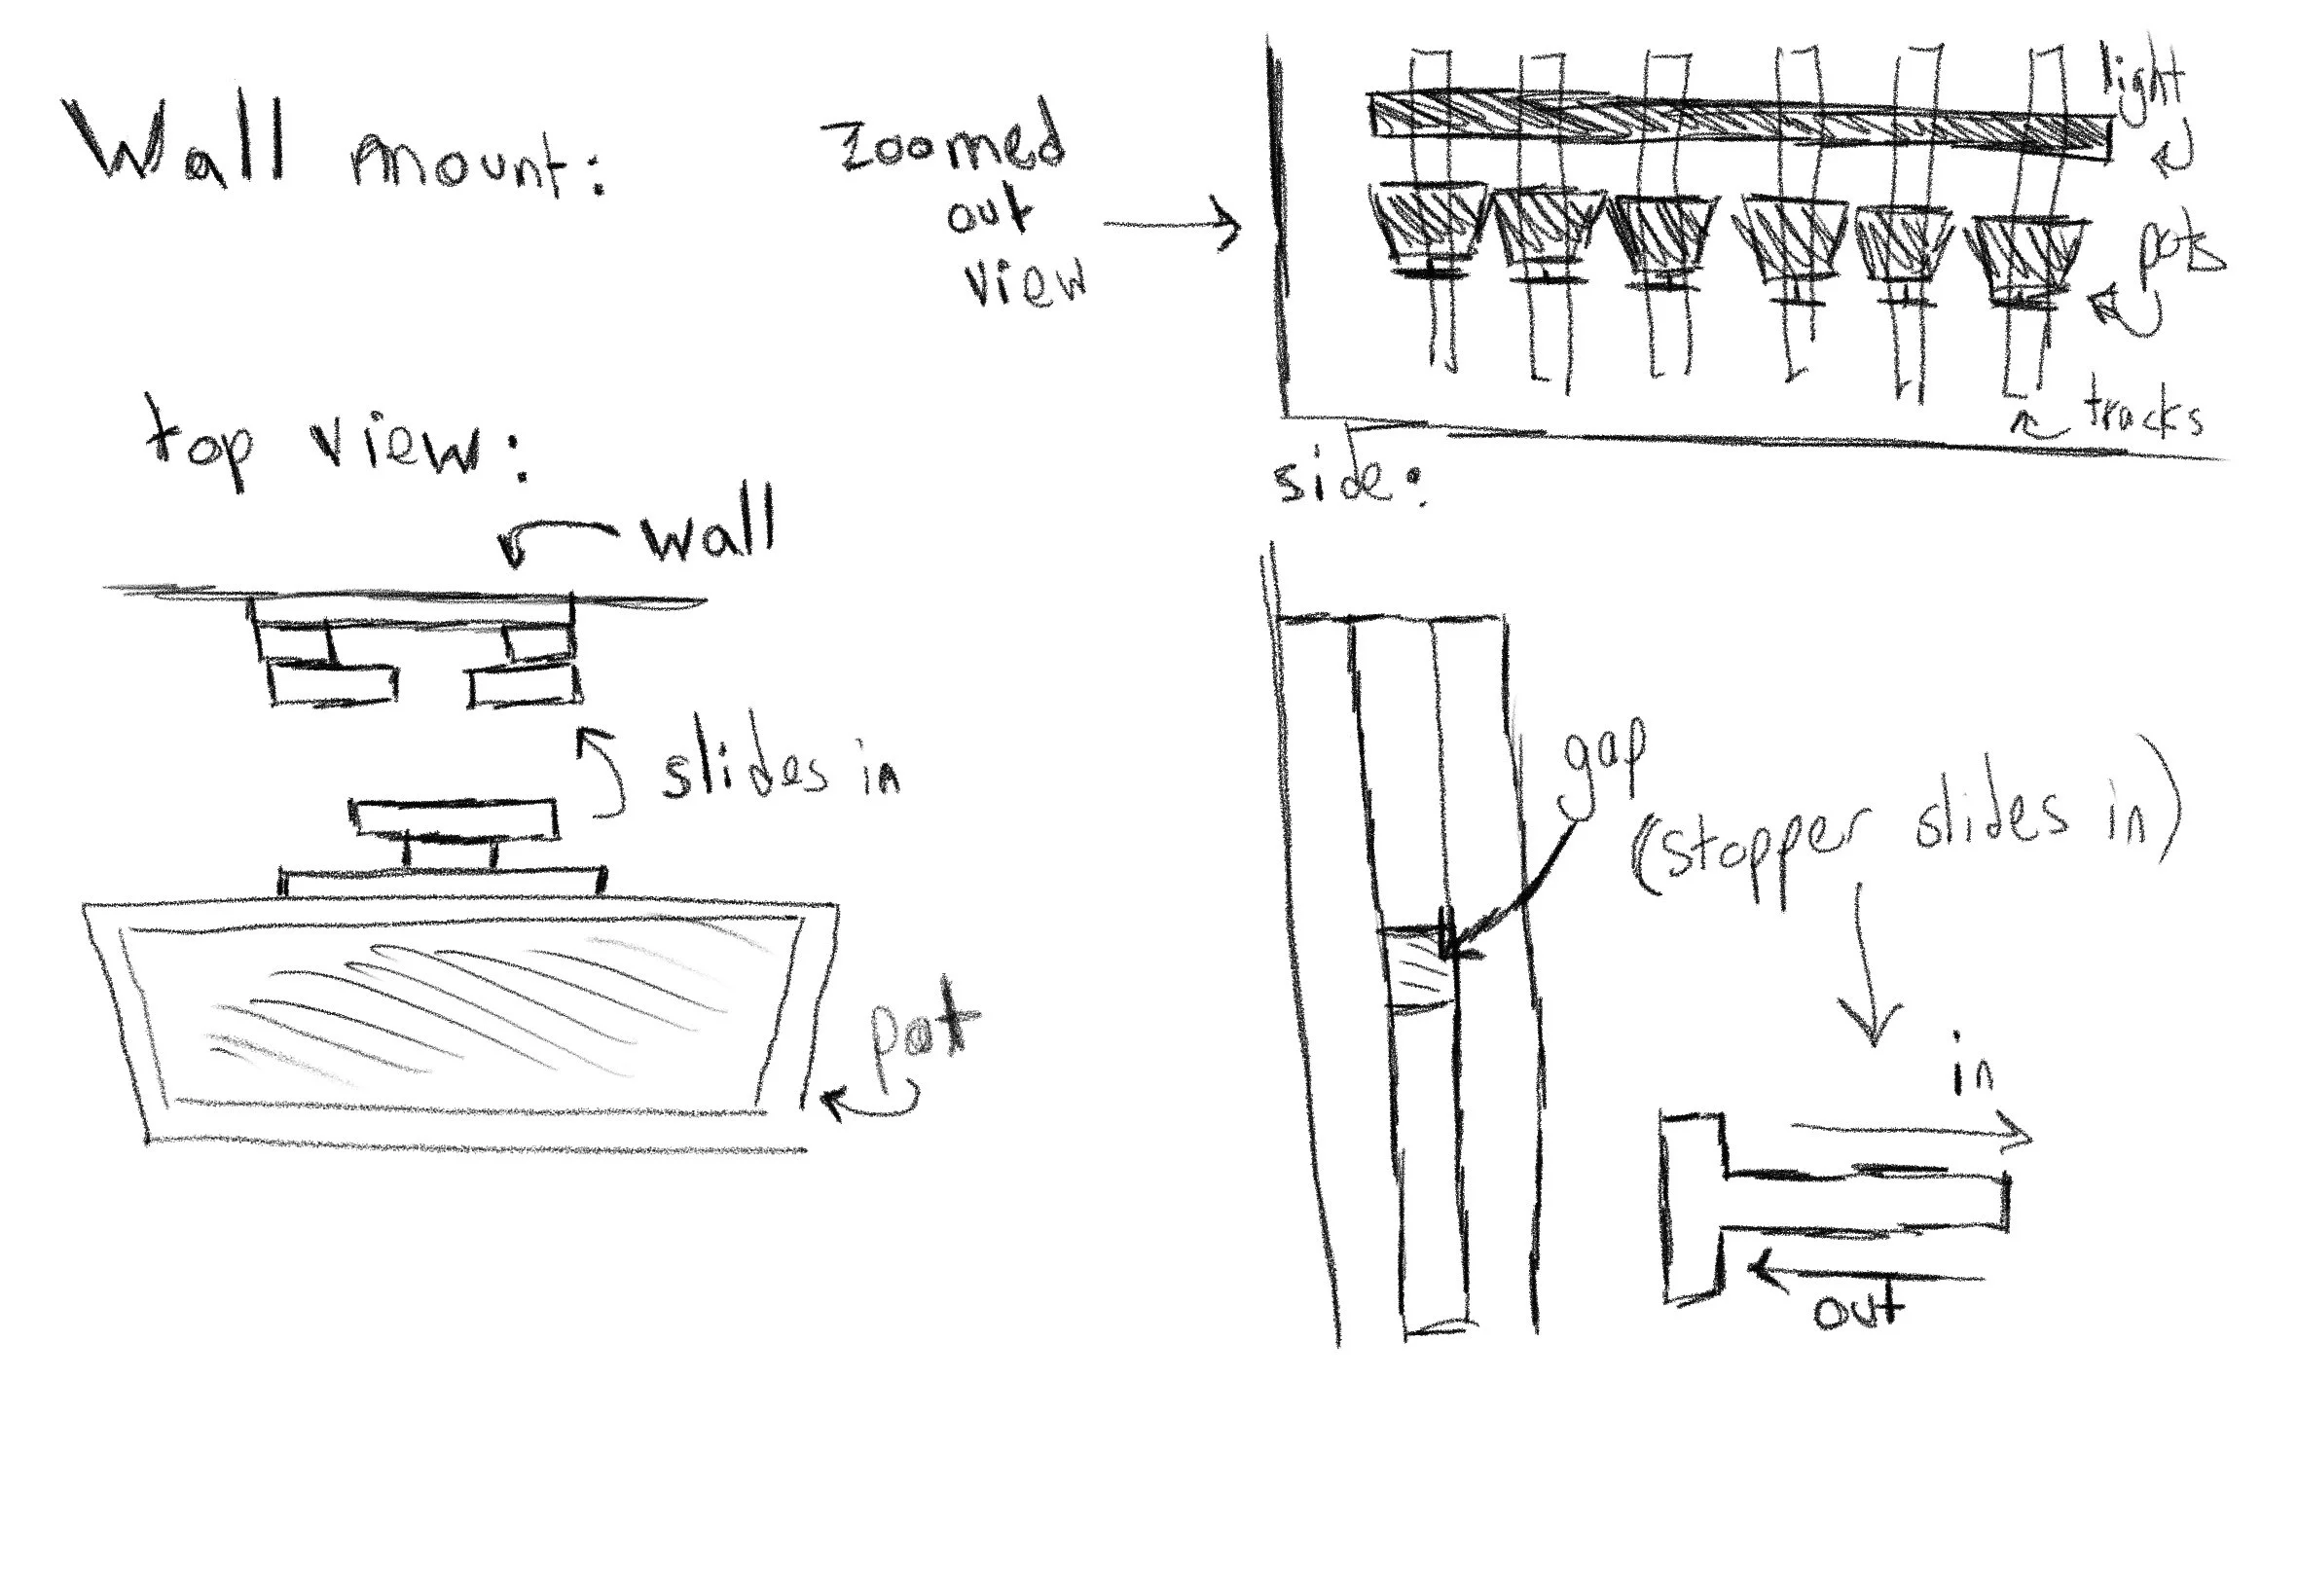 Wall mount:
zoomed
out
view
light
pots
tracks
top view:
wall
slides in
pot
side:
gap
(stopper slides in)
in
out